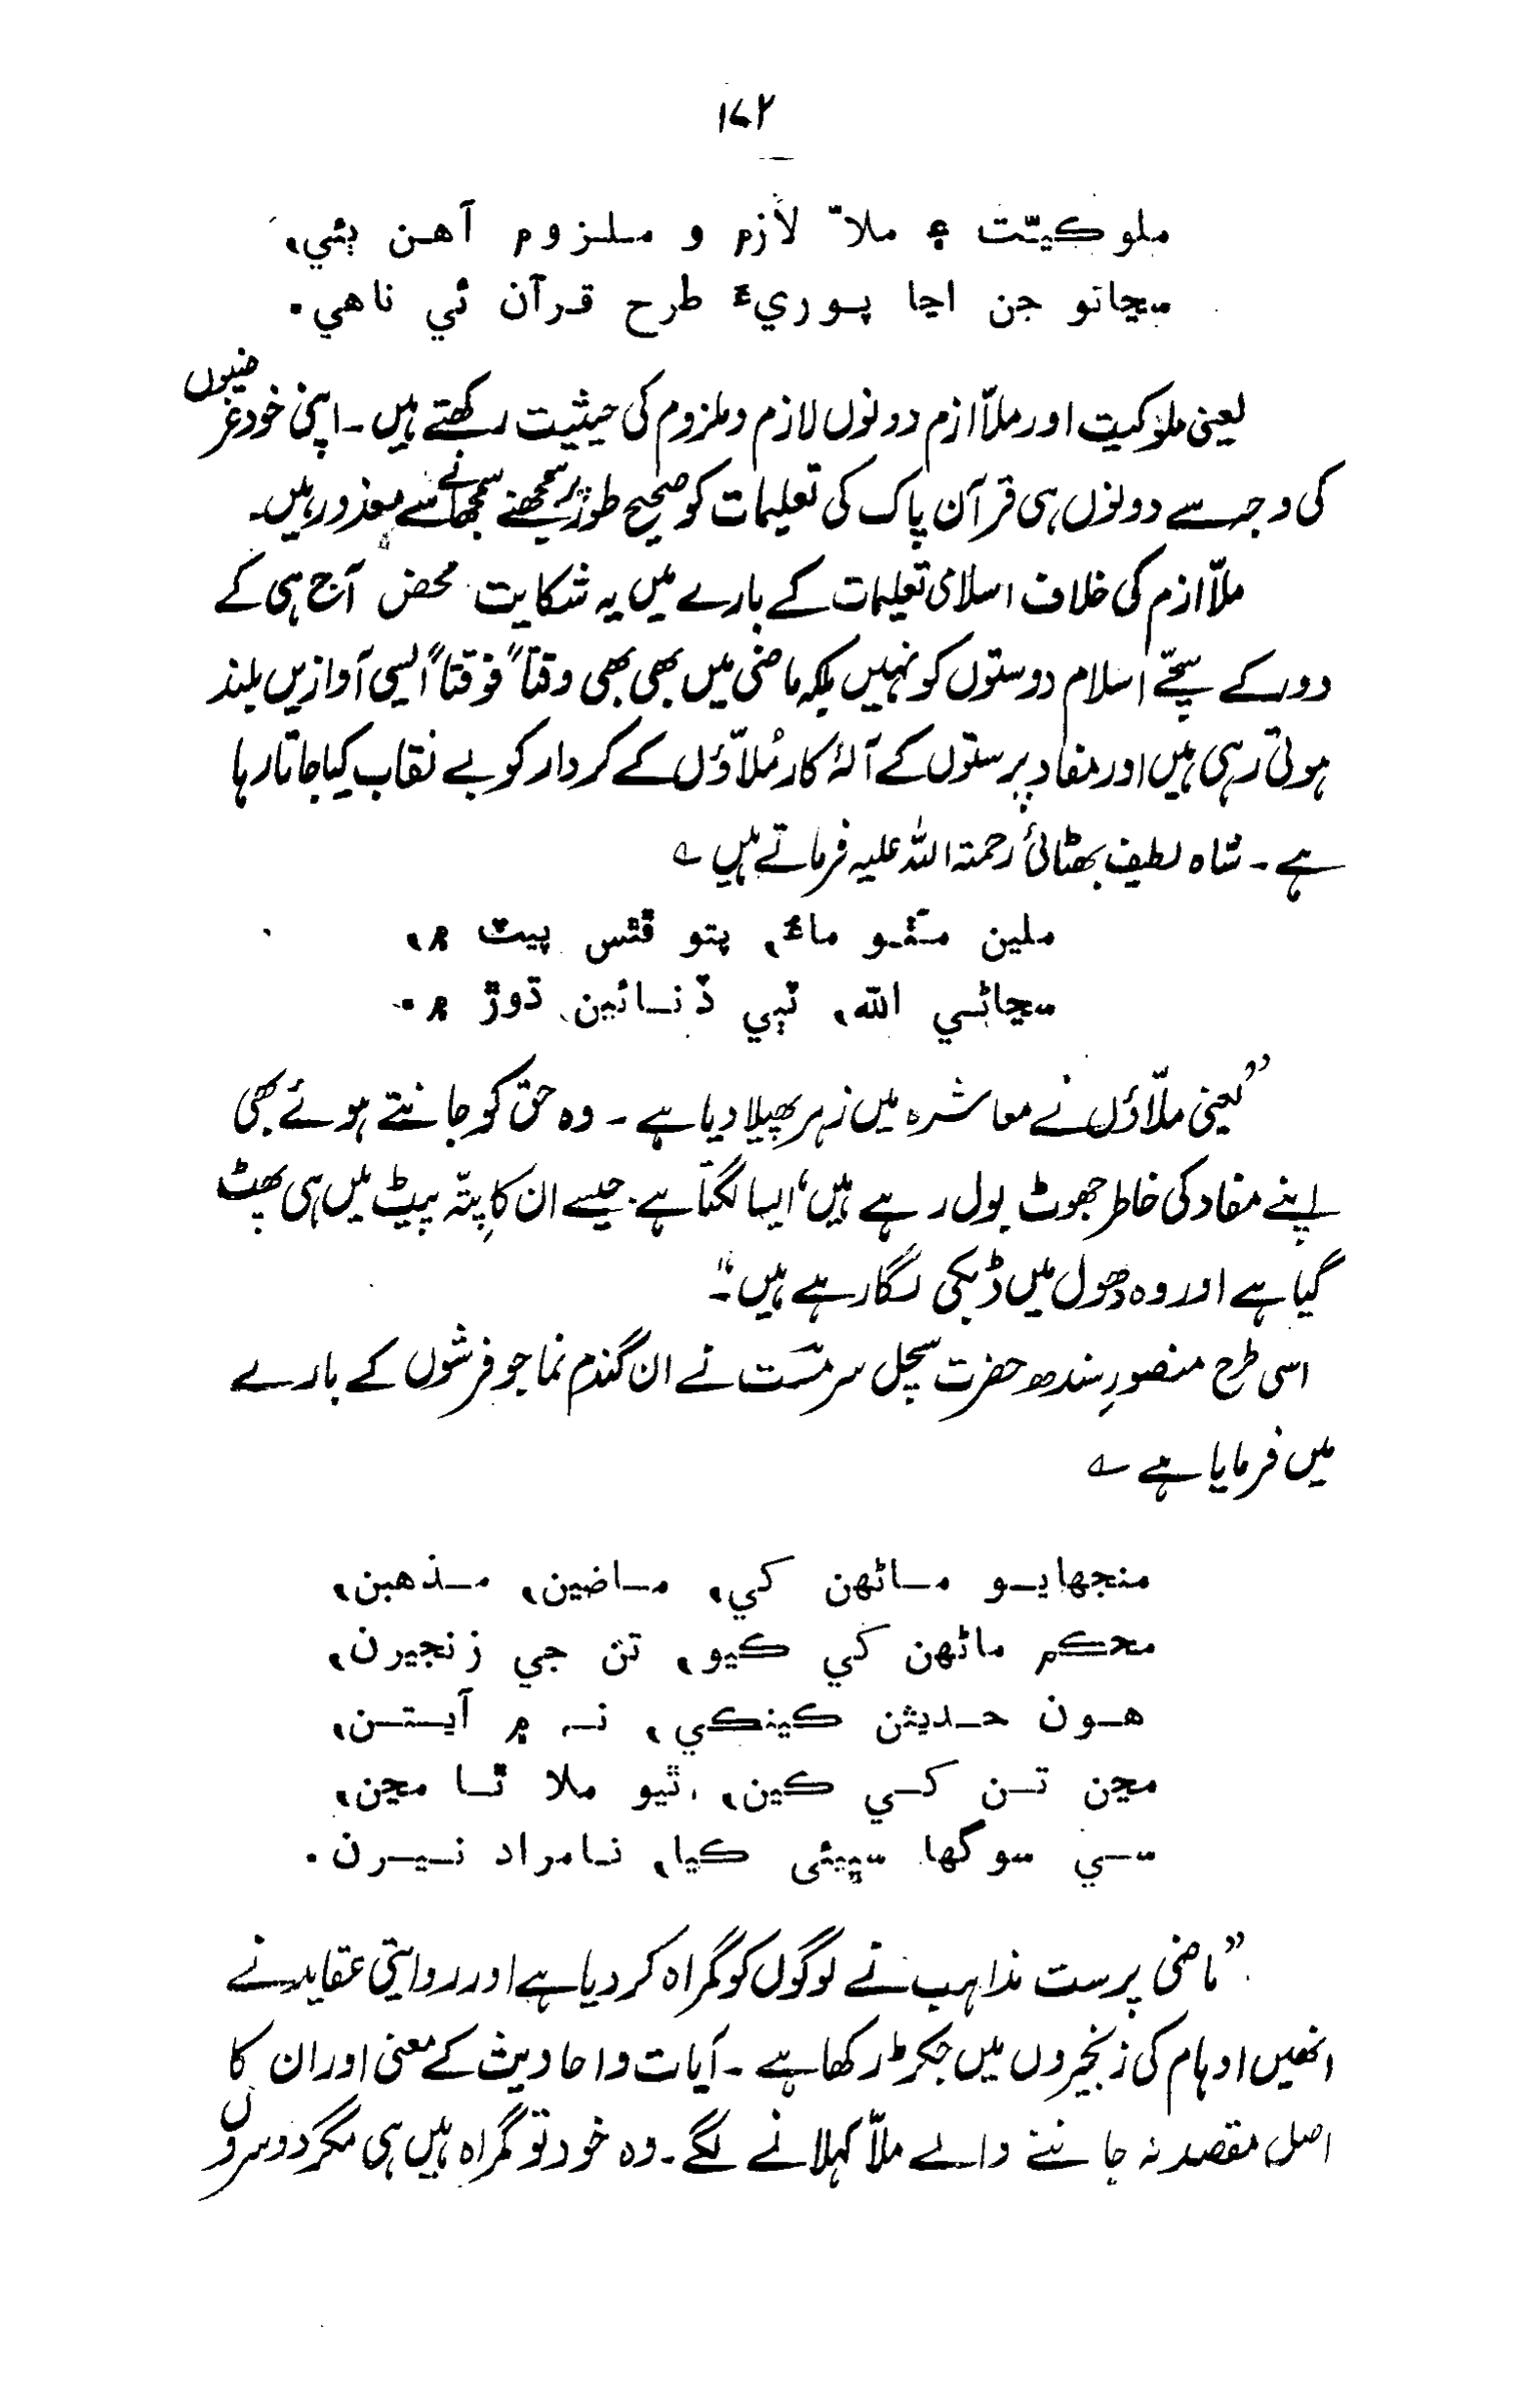 ۱۷۲
ملوڪيّت ۽ ملاّ لازم و ملزوم آهن ٻئي،
سڃاتو جن اڃا پوريءَ طرح قرآن ئي ناهي.
لعینی ملوکیت اور ملّاازم دونوں لازم وملزوم کی حیثیت رکھتے ہیں ۔ اپنی خودغرضیوں
کی وجہ سے دونوں ہی قرآن پاک کی تعلیمات کو صحیح طور پر سمجھنے سمجھانے سے معذور ہیں۔
ملّاازم کی خلاف اسلامی تعلیمات کے بارے میں یہ شکایت محض آج ہی کے
دور کے سچّے اسلام دوستوں کو نہیں بلکہ ماضی میں بھی بھی وقتاً فوقتاً ایسی آوازیں بلند
ہوتی رہی ہیں اور مفاد پرستوں کے آلۂ کار مُلاّؤں کے کردار کو بے نقاب کیا جاتا رہا
ہے ۔ شاہ لطیف بھٹائیؒ رحمتہ اللہ علیہ فرماتے ہیں ؎
ملين مٺو ماءُ، پتو ڦٽس پيٽ ۾،
سڃاڻي الله، ٽٻي ڏنائين ڌوڙ ۾.
”یعنی ملّاؤں نے معاشرہ میں زہر پھیلا دیا ہے ۔ وہ حق کو جانتے ہوئے بھی
اپنے مفاد کی خاطر جھوٹ بول رہے ہیں، ایسا لگتا ہے جیسے ان کا پِتّہ پیٹ میں ہی پھٹ
گیا ہے اور وہ دھول میں ڈبکی لگا رہے ہیں“۔
اسی طرح منصورِ سندھ حضرت سچل سرمست نے ان گندم نما جو فرشوں کے بارے
میں فرمایا ہے ؎
منجهايو ماڻهن کي، ماضين، مذهبن،
محڪم ماڻهن کي ڪيو، تن جي زنجيرن،
هون حديثن ڪينڪي، نہ ۾ آيتن،
مڃن تن کي ڪين، ٿيو ملا ٿا مڃن،
سي سوگها سڀيئي ڪيا، نامراد نيرن.
”ماضی پرست مذاہب نے لوگوں کو گمراہ کر دیا ہے اور روایتی عقاید نے
انھیں اوہام کی زنجیروں میں جکڑ رکھا ہے ۔ آیات و احادیث کے معنی اور ان کا
اصل مقصد نہ جاننے والے ملاّ کہلانے لگے ۔ وہ خود تو گمراہ ہیں ہی مگر دوسروں